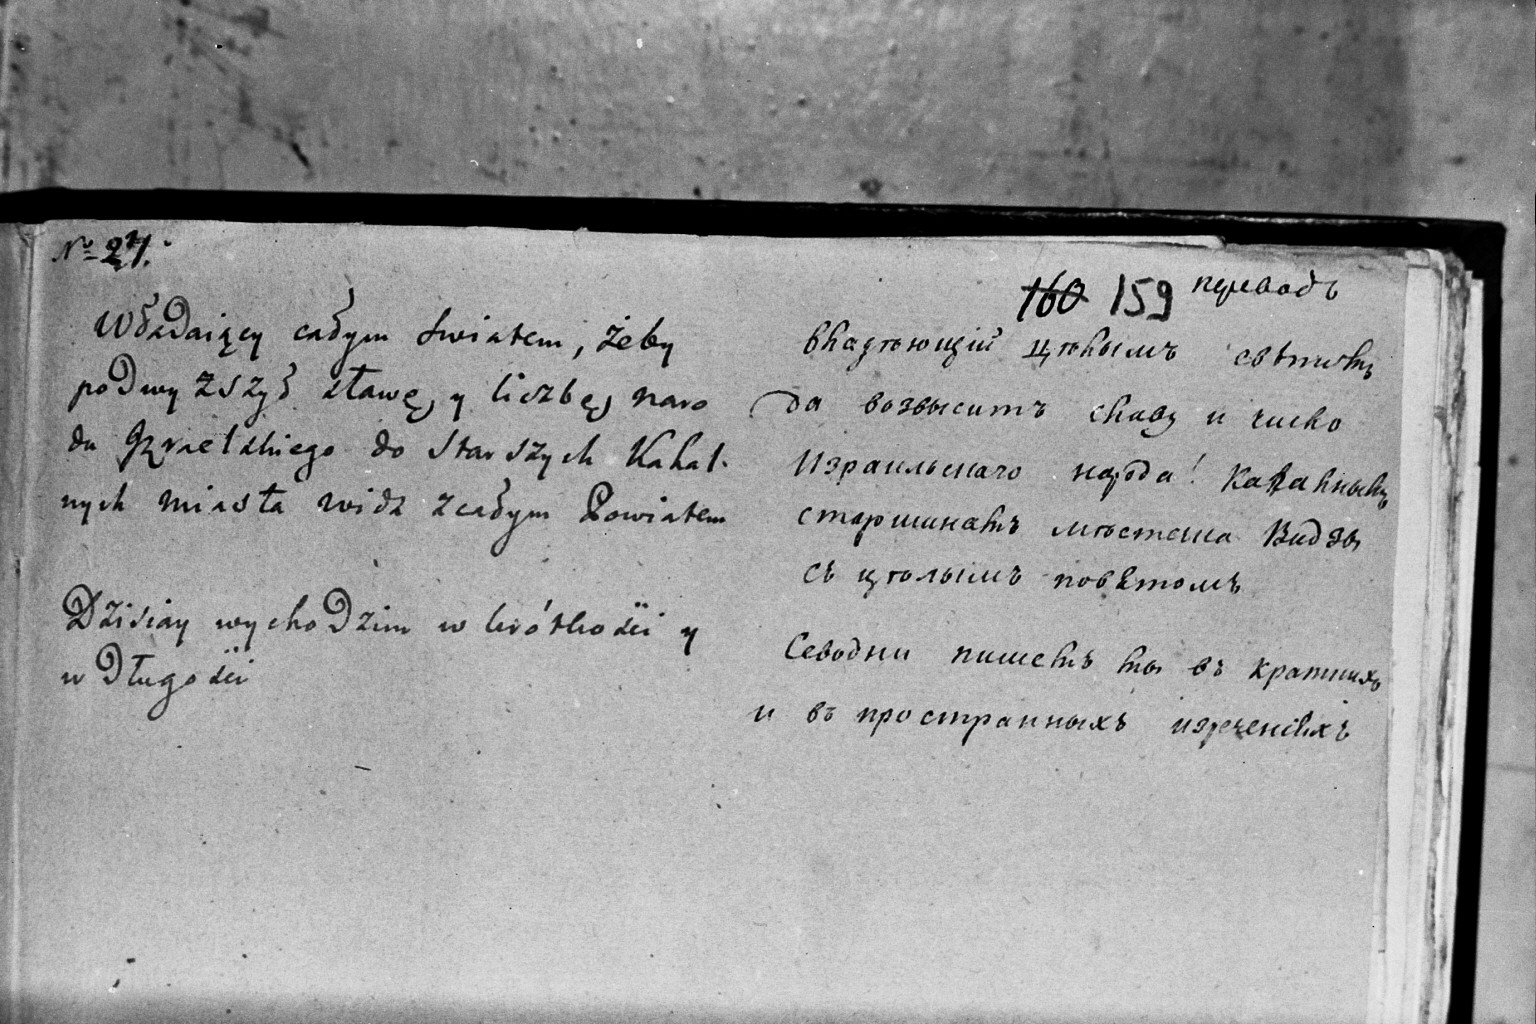 № 27.
Władaiący całym swiatem, żeby
podwyższył sławę y liczbę naro
du Jzraelskiego do starszych Kahal-
nych miasta widz z całym Powiatem
Dzisiay wychodzim w krótkości y
w Długości
160 159 переводъ
Владѣющій цѣлымъ свѣтомъ
да возвыситъ славу и число
Израильскаго народа! Кагальнымъ
старшинамъ мѣстечка Видзы
съ цѣлымъ повѣтомъ
Севодни пишемъ мы въ краткихъ
и въ пространныхъ изреченіяхъ